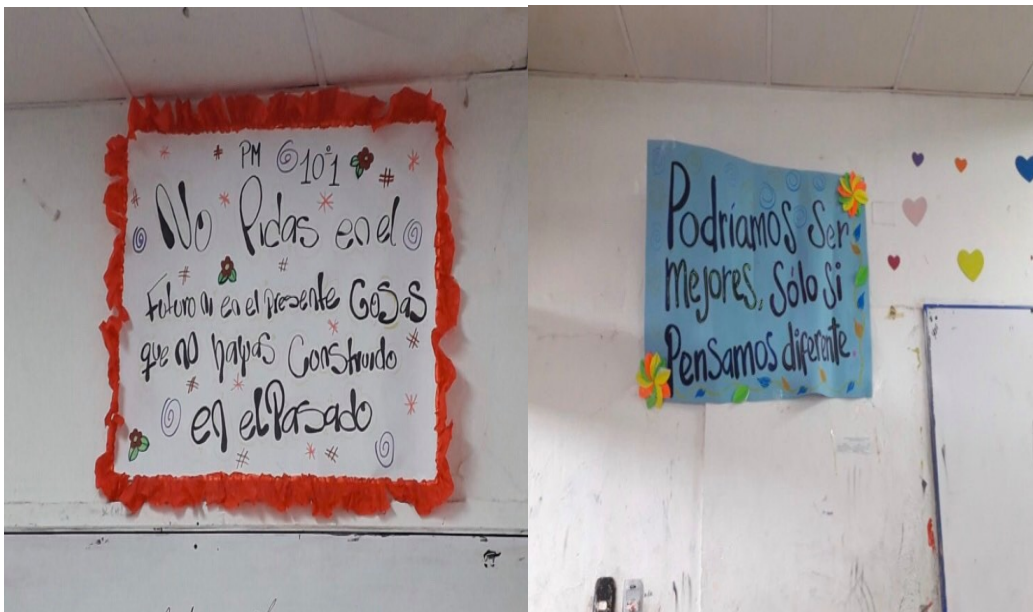 PM 10°1
No Pidas en el
Futuro ni en el presente Cosas
que no hayas Construido
en el Pasado
Podríamos Ser
mejores, Sólo Si
Pensamos diferente.